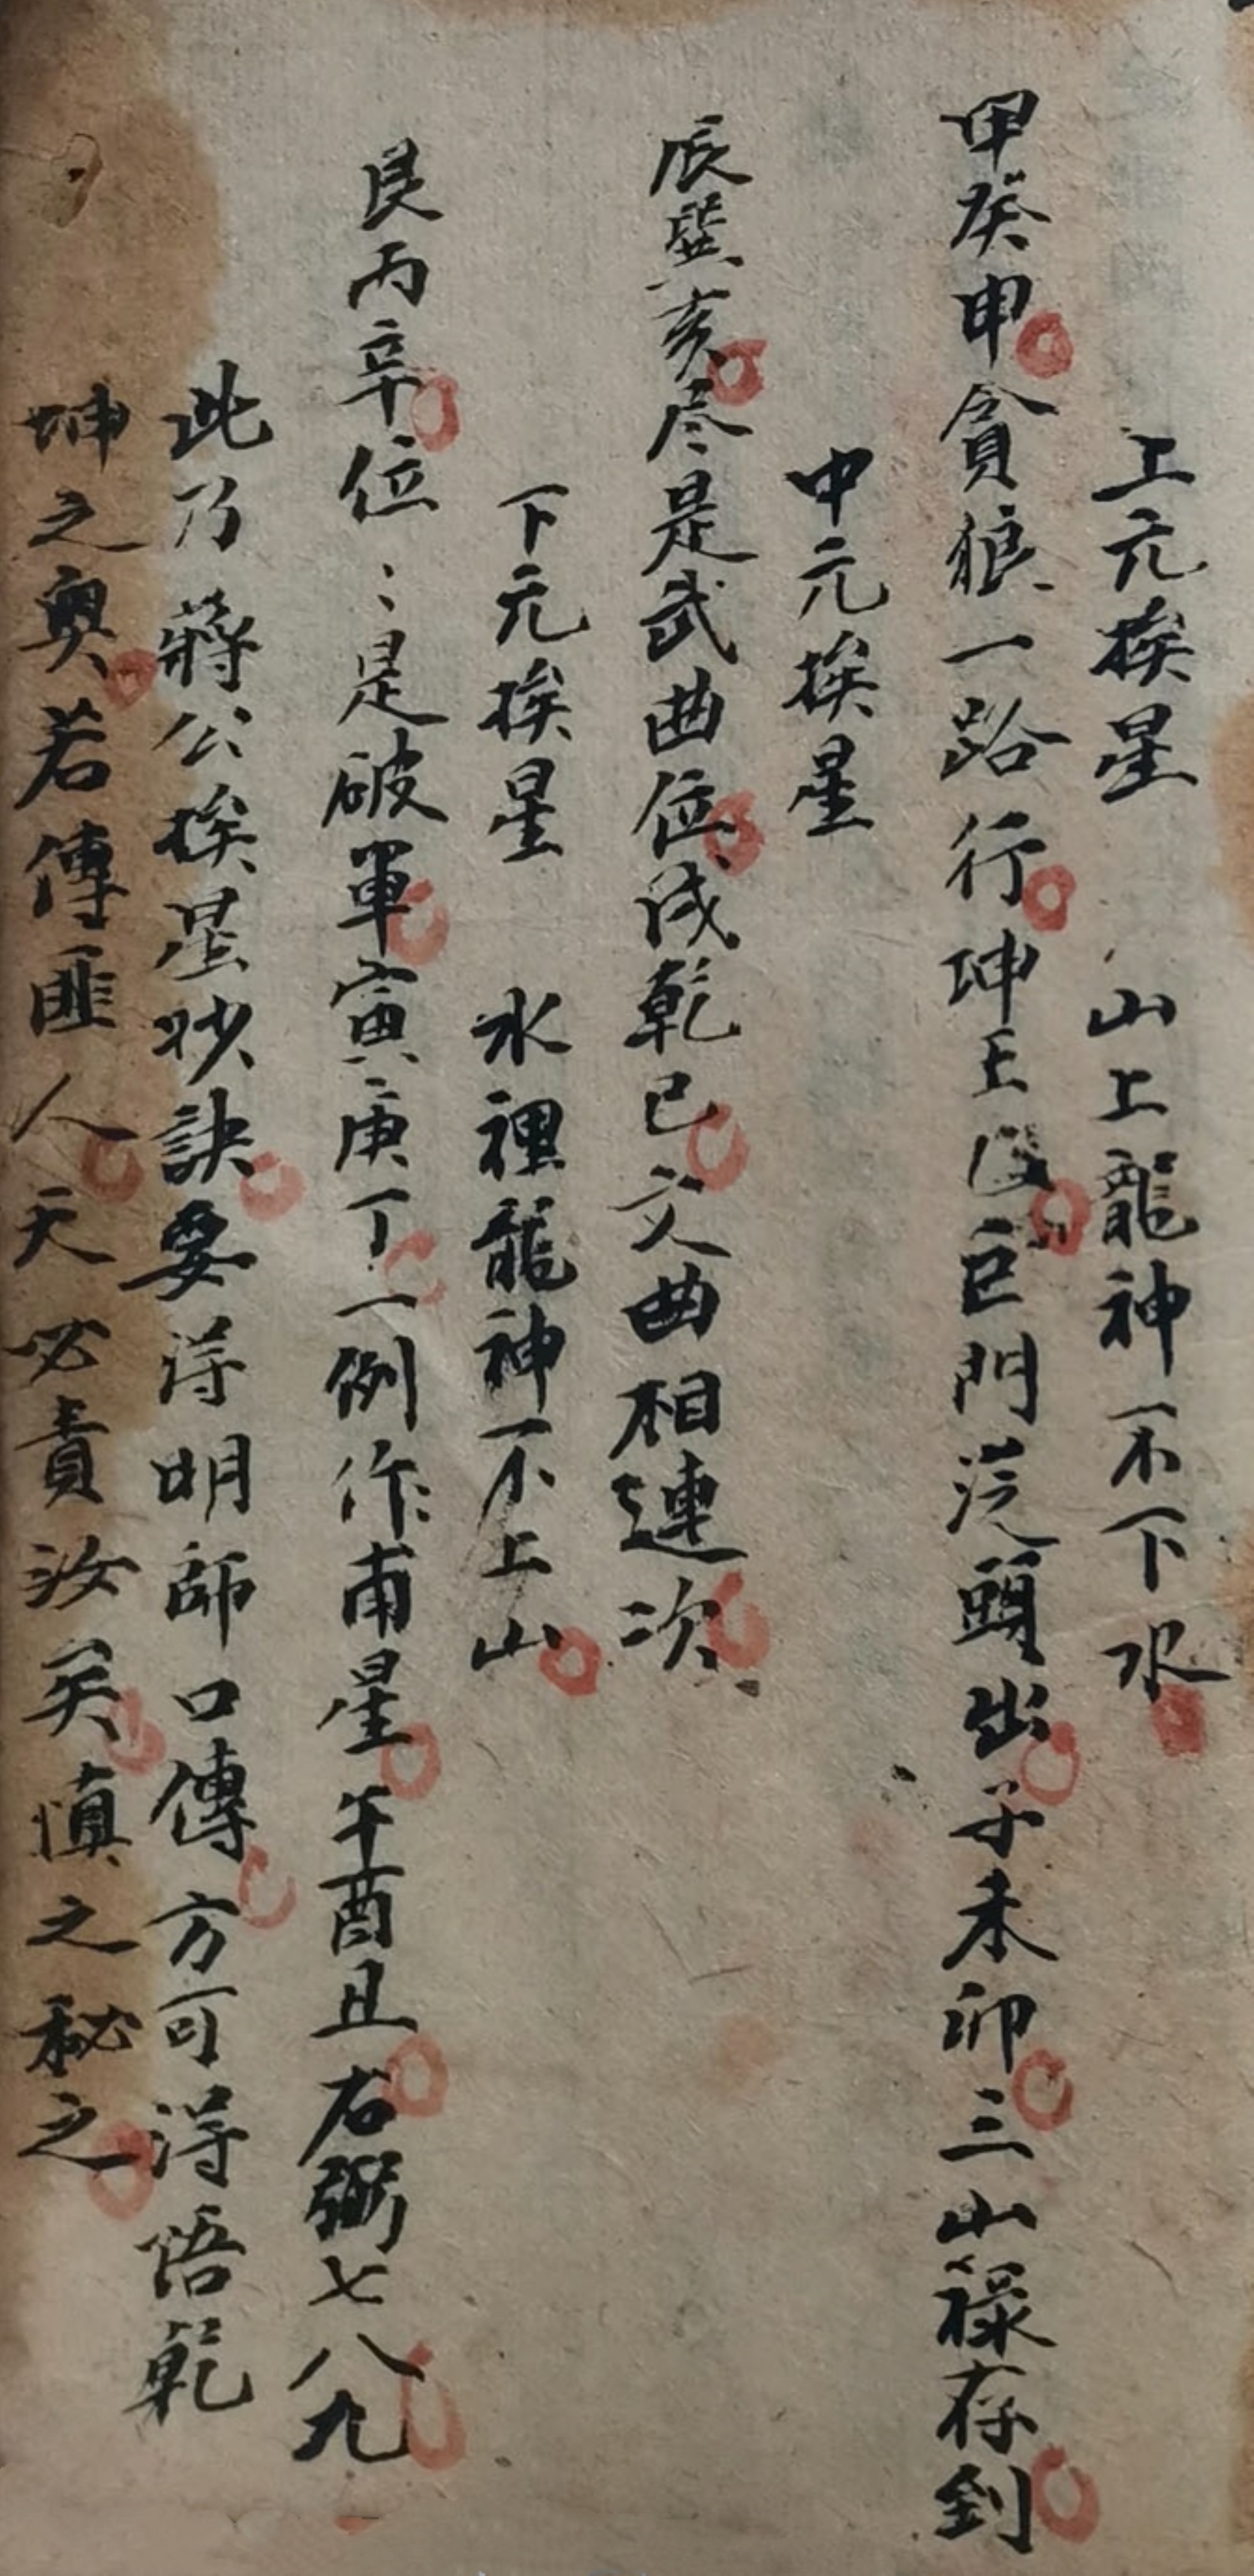 上元挨星 山上龍神不下水
甲癸申貪狼一路行坤壬巨門従頭出子未卯三山祿存到
中元挨星
辰巽亥尽是武曲位戌乾巳文曲相連次
下元挨星 水裡龍神不上山
艮丙辛位〻是破軍寅庚丁一例作甫星午酉丑右弼七八九
此乃蔣公挨星妙訣要得明師口傳方可得悟乾
坤之奧若傳匪人天必責汝矣慎之秘之